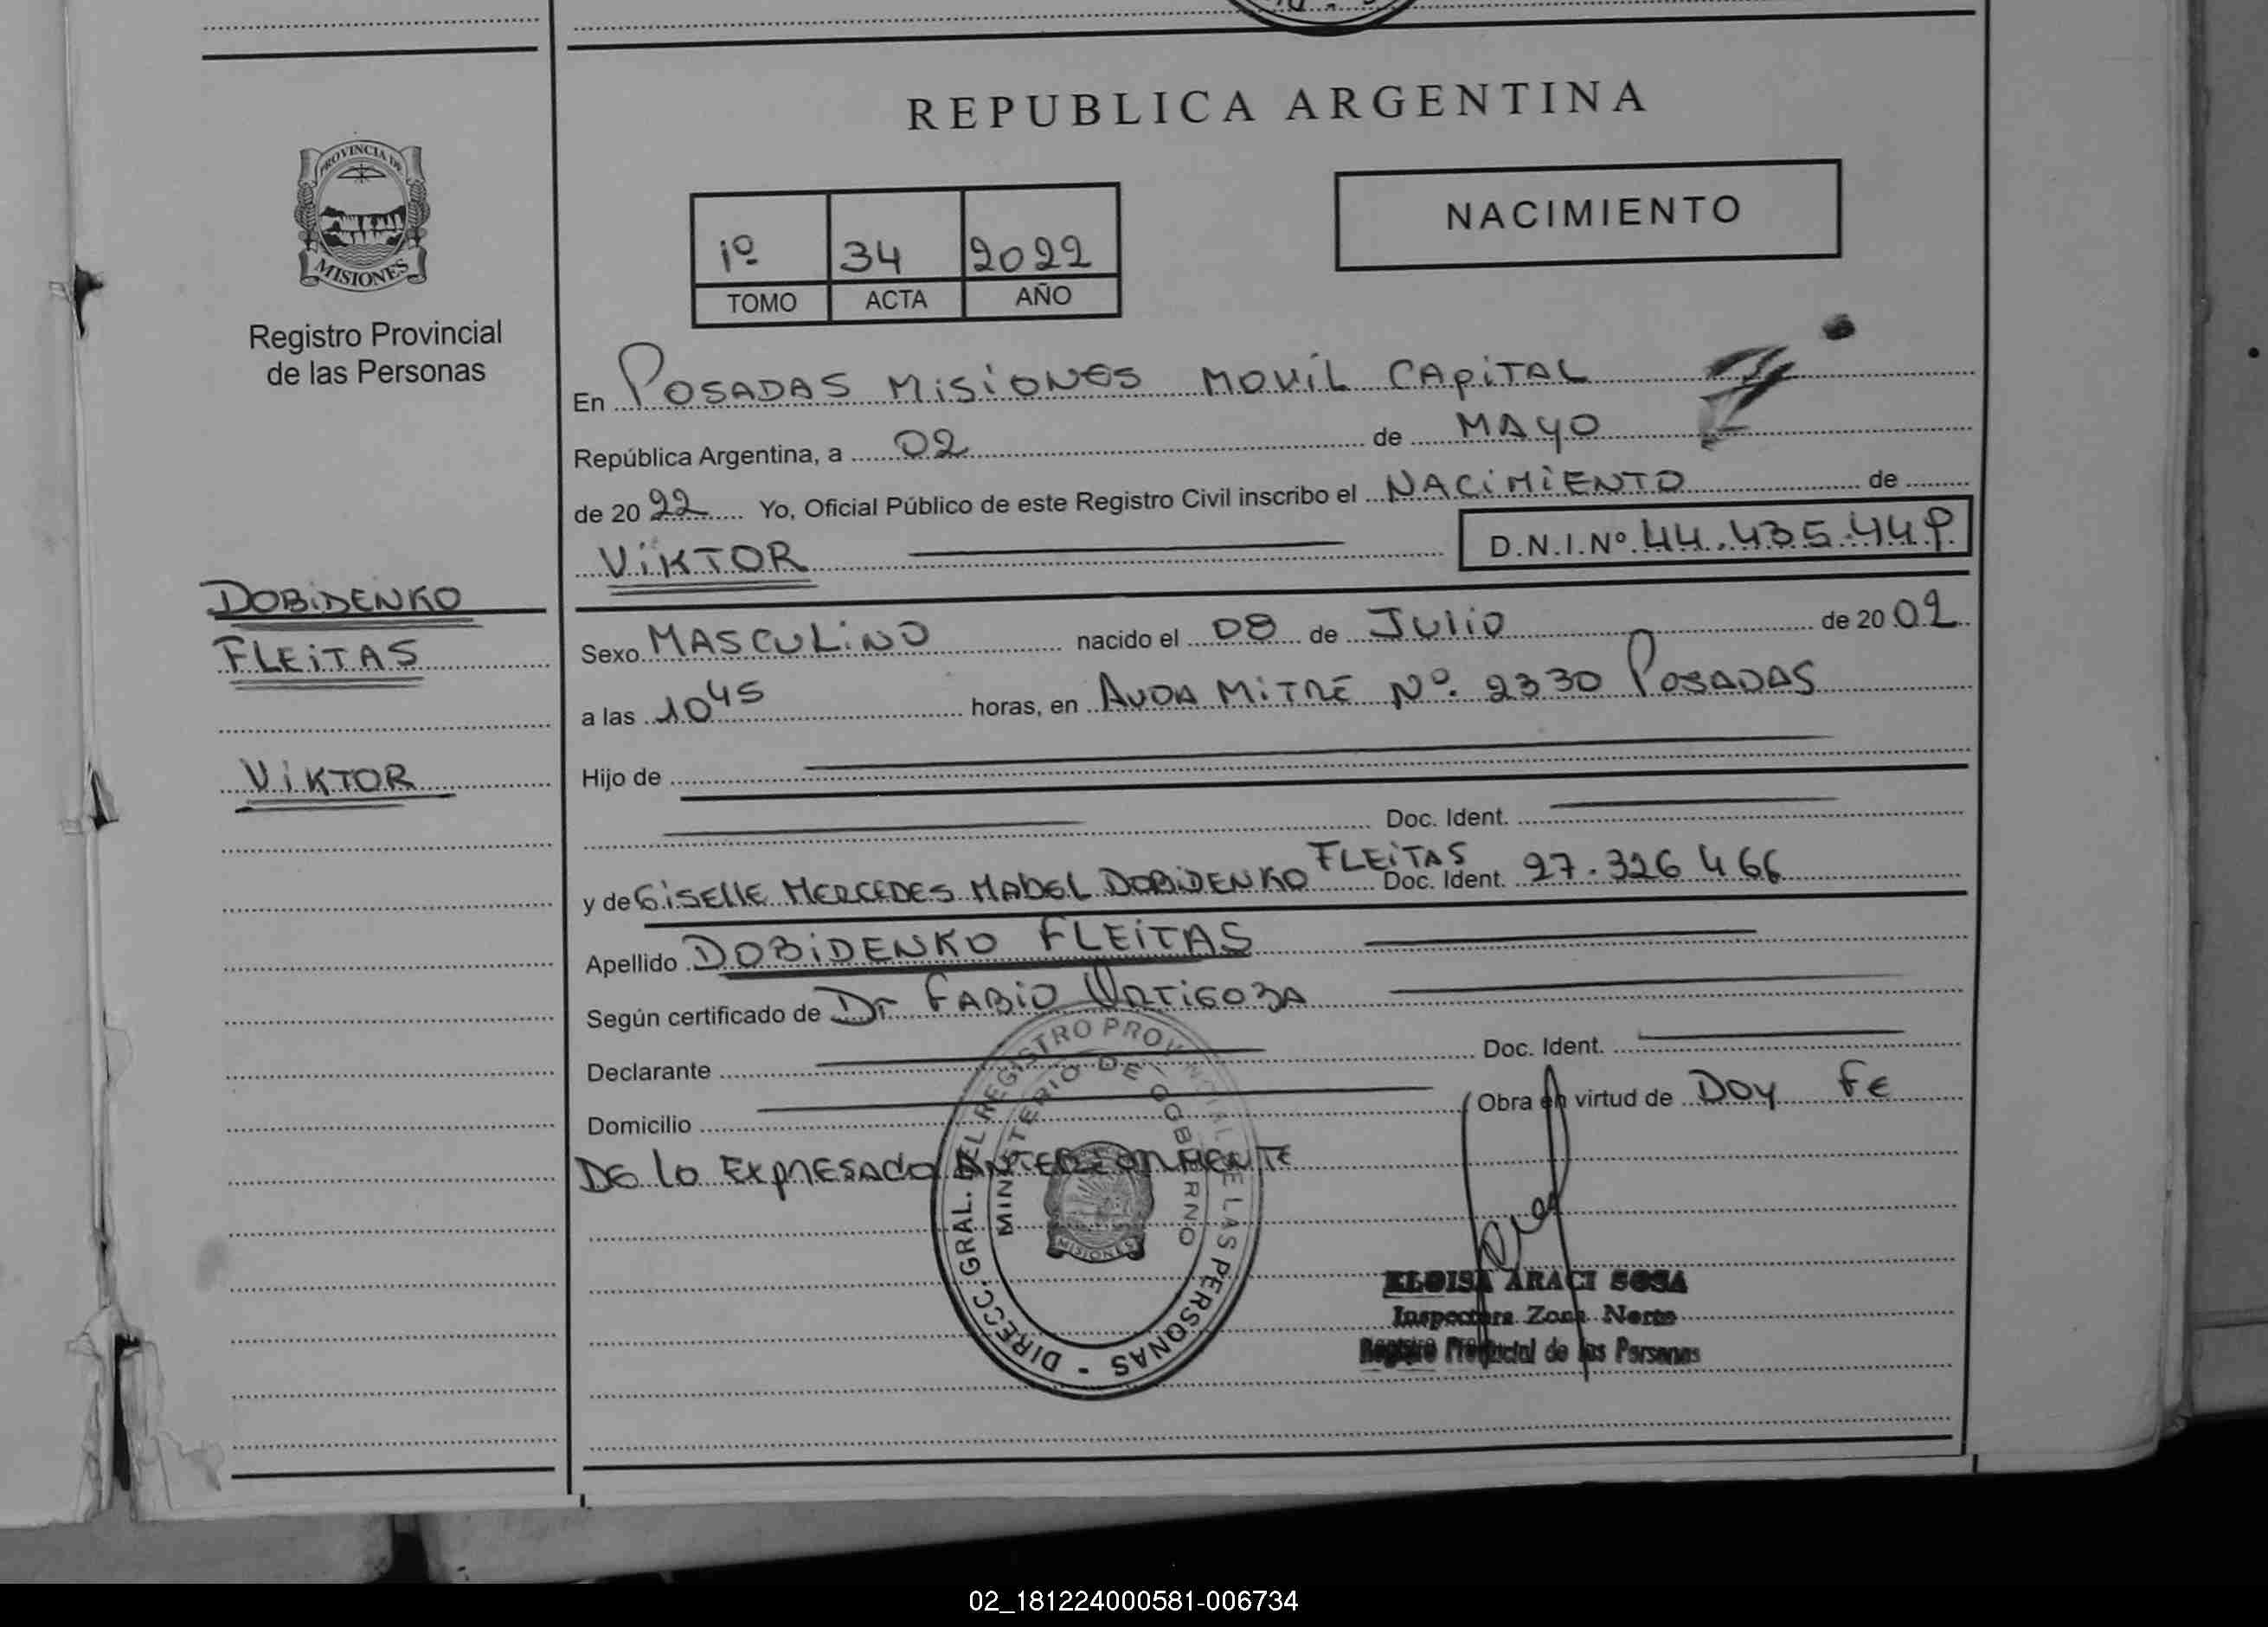 REPUBLICA ARGENTINA
PROVINCIA DE
MISIONES
Registro Provincial
de las Personas
NACIMIENTO
1º 34 2022
TOMO ACTA AÑO
En POSADAS MISIONES MOVIL CAPITAL
República Argentina, a 02 de MAYO
de 20 22 Yo, Oficial Público de este Registro Civil inscribo el NACIMIENTO de
VIKTOR D.N.I.Nº. 44.435.449
DOBIDENKO
FLEITAS
VIKTOR
Sexo MASCULINO nacido el 08 de JULIO de 20 02
a las 10 45 horas, en AVDA MITRE Nº. 2330 POSADAS
Hijo de
Doc. Ident.
y de GISELLE MERCEDES MABEL DOBIDENKO FLEITAS Doc. Ident. 27.326 466
Apellido DOBIDENKO FLEITAS
Según certificado de Dr FABIO URTIGOZA
Declarante Doc. Ident.
Domicilio Obra en virtud de DOY FE
DE LO EXPRESADO ANTERIORMENTE
DIRECC. GRAL. DEL REGISTRO PROVINCIAL DE LAS PERSONAS -
MINISTERIO DE GOBIERNO
MISIONES
ELOISA ARACI SOSA
Inspectora Zona Norte
Registro Provincial de las Personas
02_181224000581-006734